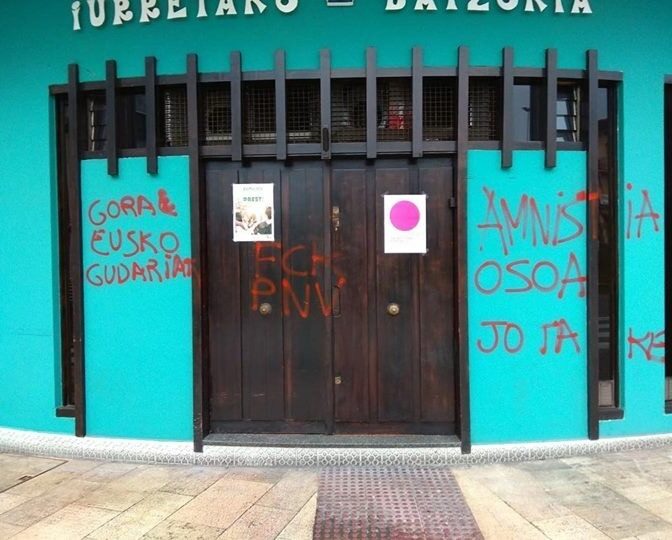 iURRETAKO - BATZOKIA
GORA
EUSKO
GUDARIAK
FCK
PNV
AMNISTIA
OSOA
JO TA
KE